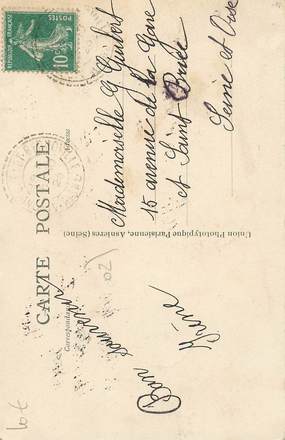 CARTE POSTALE
Correspondance
Adresse
Bon souvenir
Irène
Mademoiselle G Guibert
15 avenue de la Gare
et Saint Brice
Seine et Oise
Union Phototypique Parisienne, Asnières (Seine)
REPUBLIQUE FRANÇAISE
POSTES
10c
10 €